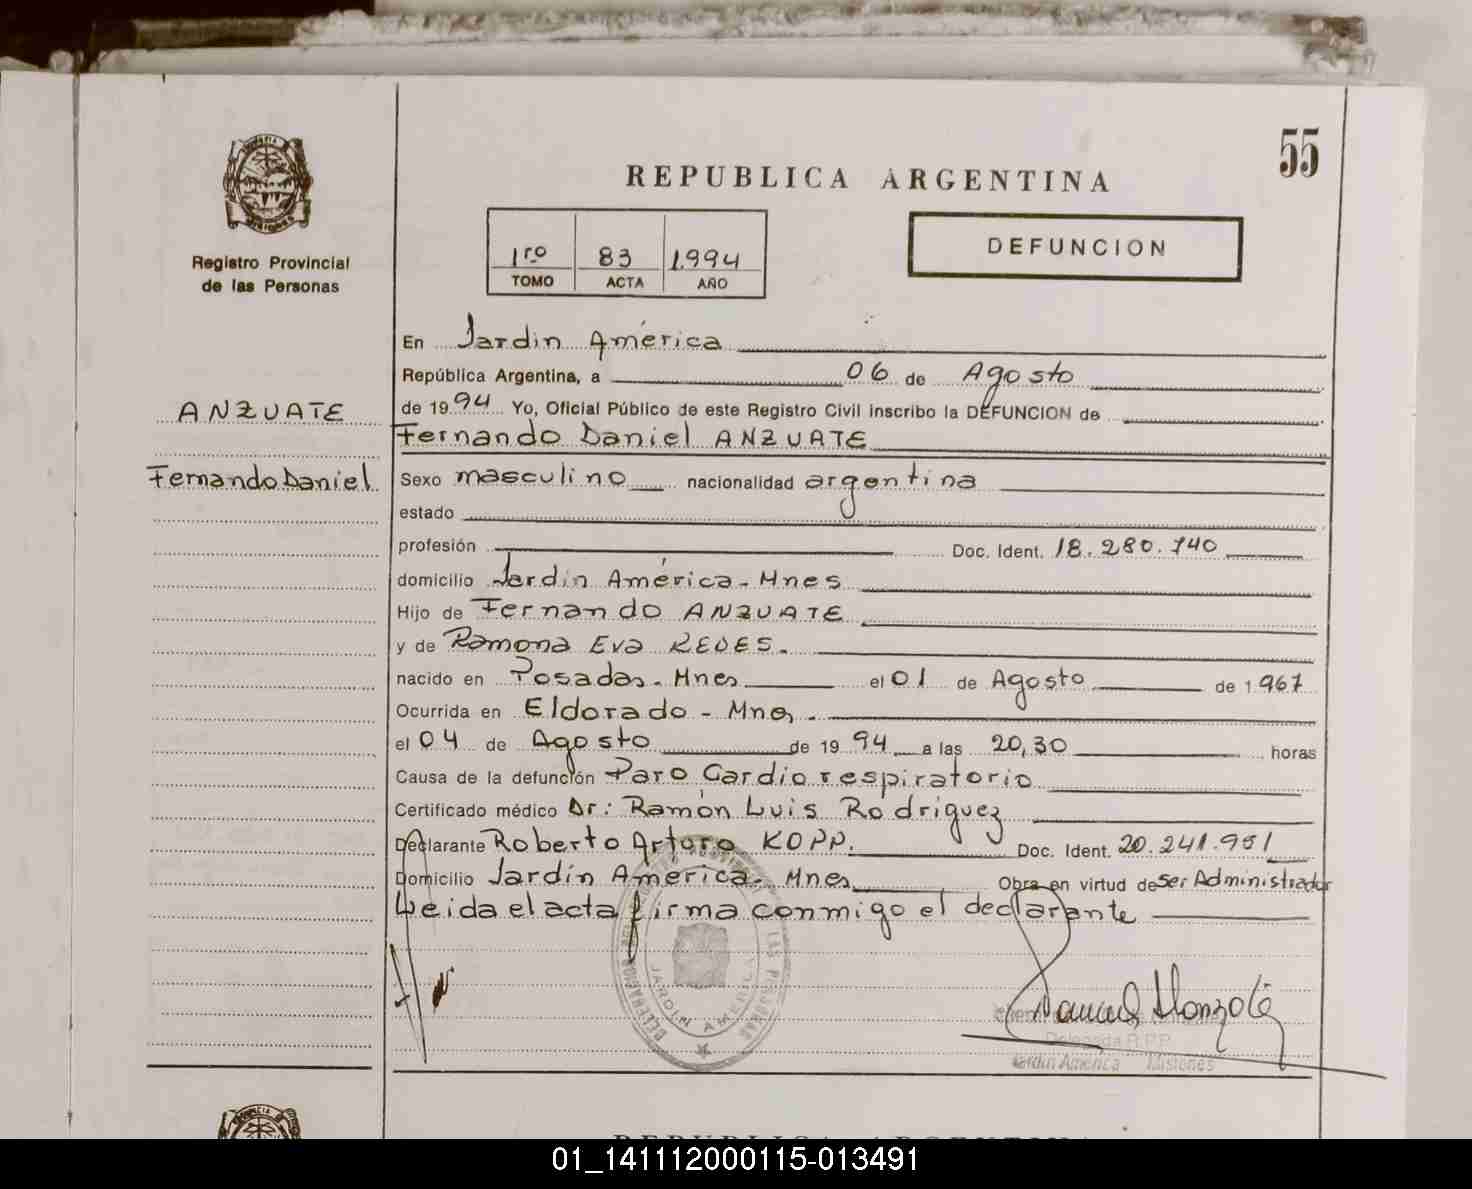 55
REPUBLICA ARGENTINA
1ro 83 1.994
TOMO ACTA AÑO
DEFUNCION
Registro Provincial
de las Personas
ANZUATE
Fernando Daniel
En Jardin América
República Argentina, a 06 de Agosto
de 1994 Yo, Oficial Público de este Registro Civil inscribo la DEFUNCION de
Fernando Daniel ANZUATE
Sexo masculino nacionalidad argentina
estado
profesión Doc. Ident. 18.280.740
domicilio Jardin América - Mnes
Hijo de Fernando ANZUATE
y de Ramona Eva
nacido en Posadas - Mnes el 01 de Agosto de 1.967
Ocurrida en Eldorado - Mnes.
el 04 de Agosto de 1994 a las 20,30 horas
Causa de la defunción Paro Cardio respiratorio
Certificado médico Dr: Ramón Luis Rodriguez
Declarante Roberto Arturo KOPP. Doc. Ident. 20.241.951
Domicilio Jardin America - Mnes Obra en virtud de Ser Administrador
Leida el acta firma conmigo el declarante
DE LAS PERSONAS
JARDIN AMERICA
Delegada R.P.P.
Jardín América Misiones
REPUBLICA ARGENTINA
01_141112000115-013491